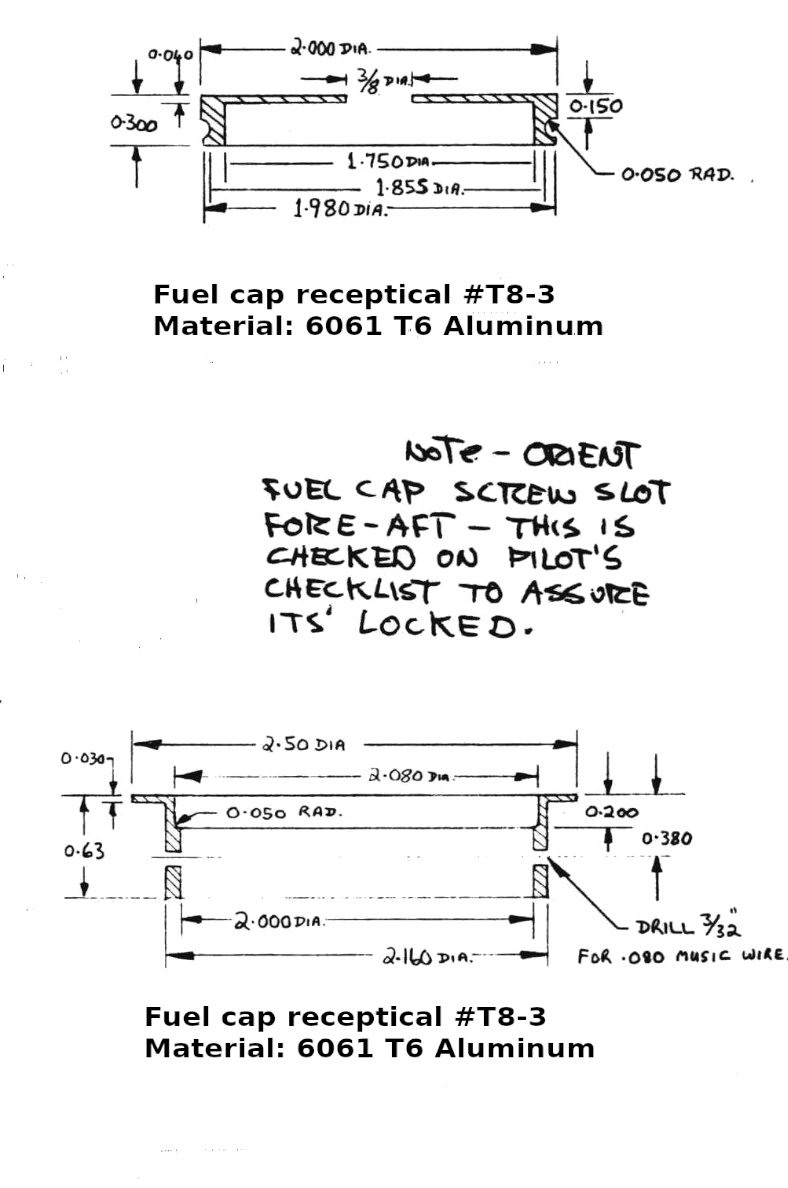 2.000 DIA.
0.040
3/8 DIA.
0.300
0.150
1.750 DIA.
0.050 RAD.
1.855 DIA.
1.980 DIA.
Fuel cap receptical #T8-3
Material: 6061 T6 Aluminum
NOTE - ORIENT
FUEL CAP SCREW SLOT
FORE-AFT - THIS IS
CHECKED ON PILOT'S
CHECKLIST TO ASSURE
ITS' LOCKED.
2.50 DIA
0.030
2.080 DIA.
0.050 RAD.
0.200
0.380
0.63
2.000 DIA.
DRILL 3/32"
FOR .080 MUSIC WIRE.
2.160 DIA.
Fuel cap receptical #T8-3
Material: 6061 T6 Aluminum